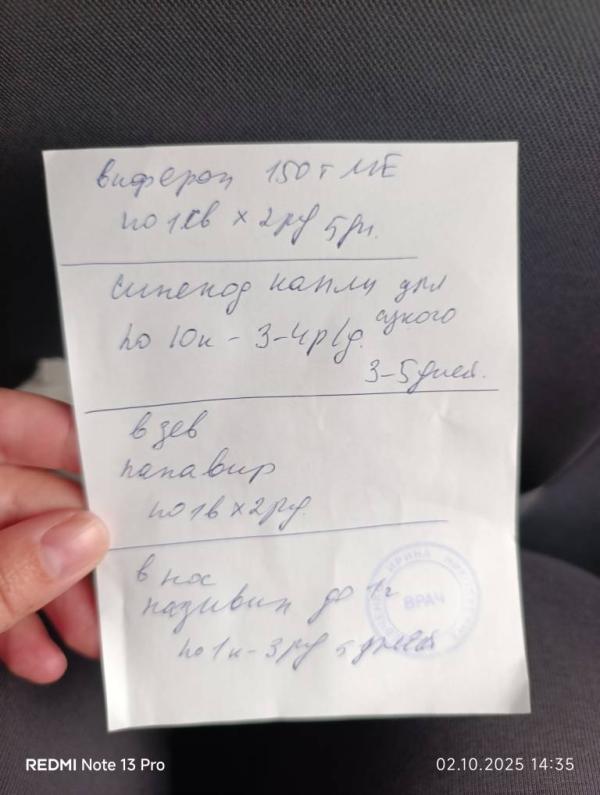 виферон 150 т МЕ
по 1 св х 2 р/д 5 дн.
синекод капли для
сухого
по 10 к - 3-4 р/д.
3-5 дней.
в зев
панавир
по 1 в х 2 р/д
в нос
називин до 1 г
по 1 к - 3 р/д 5 дней
ИРИНА
ВРАЧ
REDMI Note 13 Pro
02.10.2025 14:35